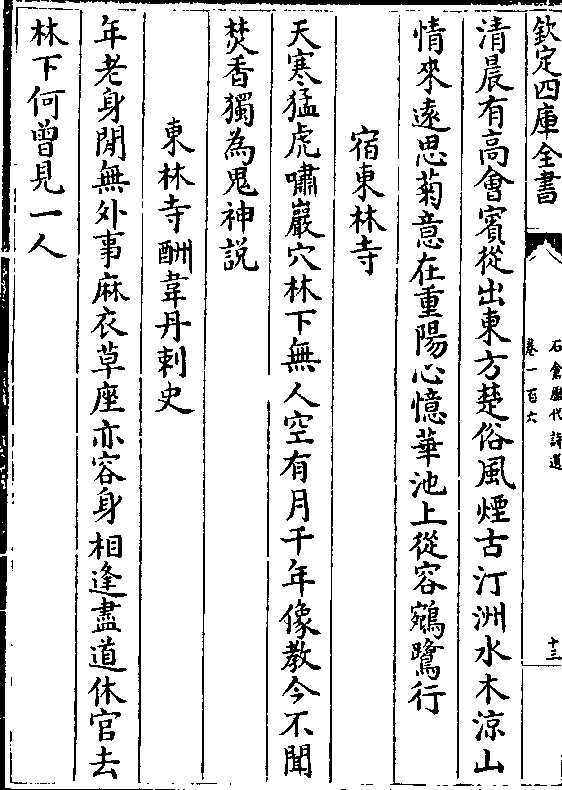 欽定四庫全書
石倉歷代詩選
卷一百六
十三
清晨有高會賓從出東方楚俗風煙古汀洲水木涼山
情來遠思菊意在重陽心憶華池上從容鵷鷺行
宿東林寺
天寒猛虎嘯巖穴林下無人空有月千年像教今不聞
焚香獨為鬼神説
東林寺酬韋丹刺史
年老身閒無外事麻衣草座亦容身相逢盡道休官去
林下何曾見一人